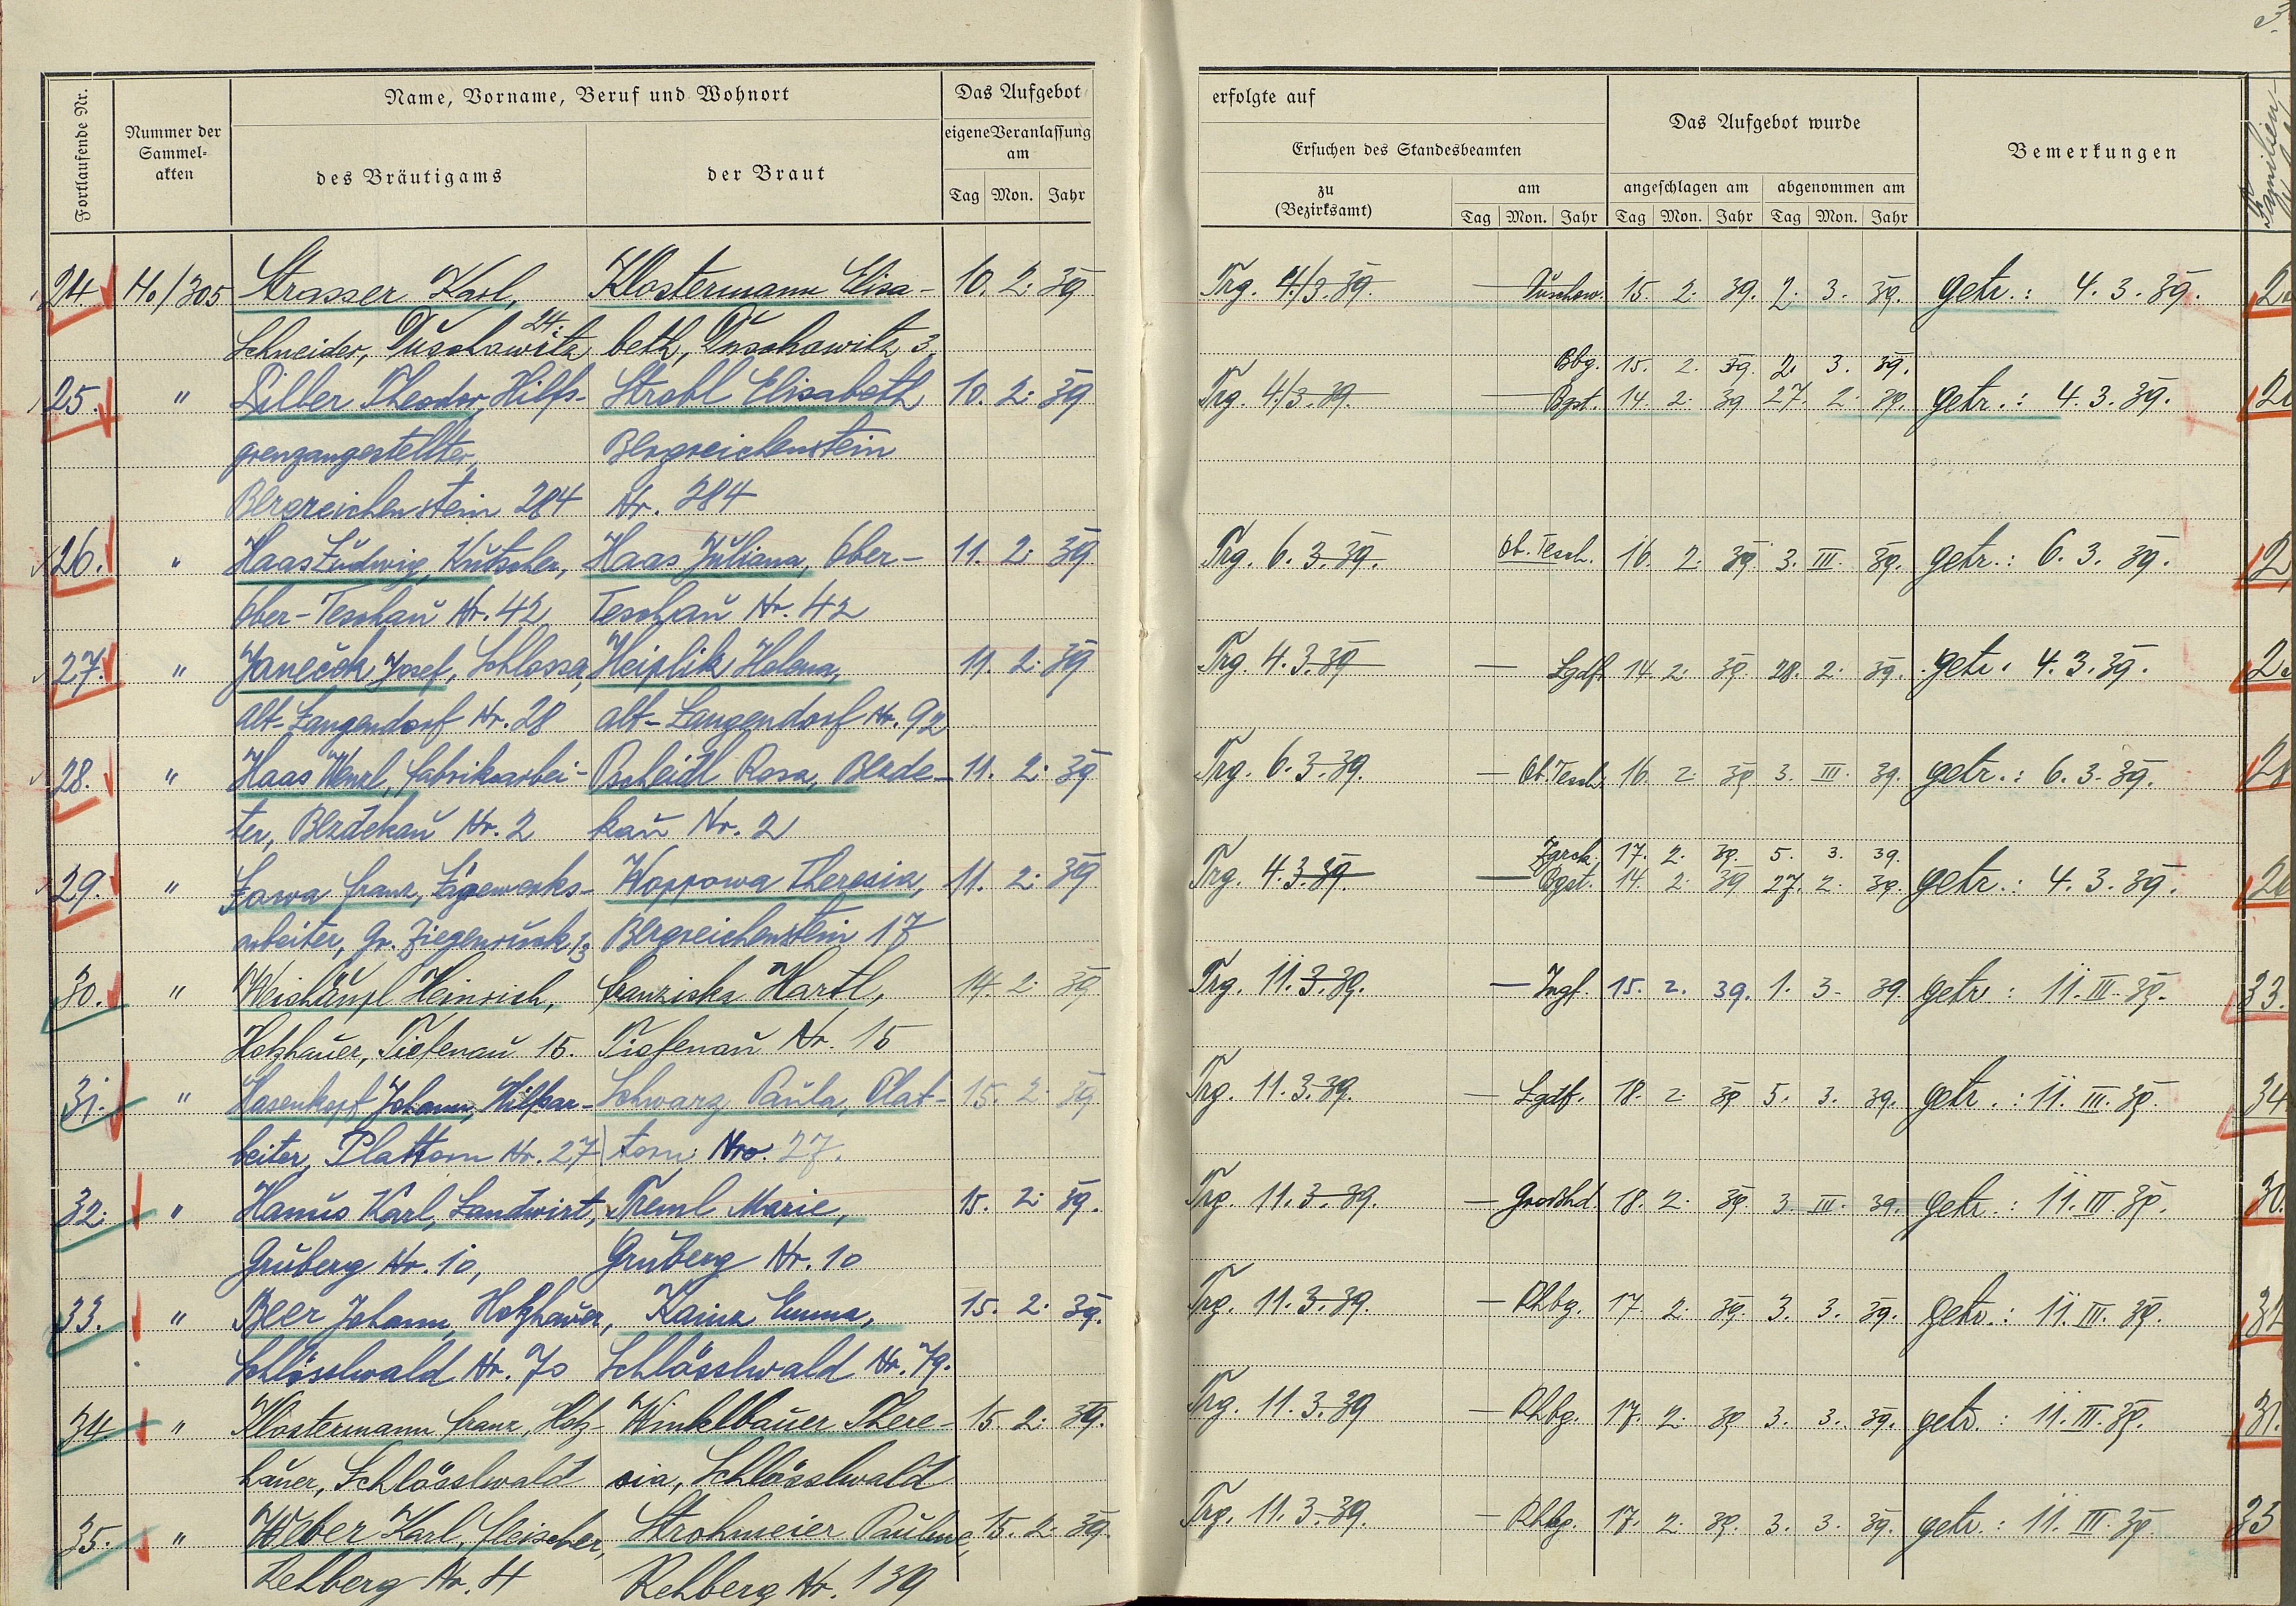 Fortlaufende Nr.
Nummer der Sammel-akten
Name, Vorname, Beruf und Wohnort
des Bräutigams
der Braut
Das Aufgebot
eigene Veranlassung am
Tag Mon. Jahr
erfolgte auf
Ersuchen des Standesbeamten
zu (Bezirksamt)
am
Tag Mon. Jahr
Das Aufgebot wurde
angeschlagen am abgenommen am
Tag Mon. Jahr Tag Mon. Jahr
Bemerkungen
Familien-
24. H./305 Strasser Karl, Klostermann Elisa- 10. 2. 39 Trg. 4/3.39. — Duschow. 15 2. 39. 2. 3. 39. getr.: 4.3.39.
Schneider, Duschowitz 24. beth, Duschowitz 3
Bbg. 15. 2. 39. 2. 3. 39.
25. " Theodor, Hilfs- Strobl Elisabeth 10. 2. 39 Trg. 4/3.39. — Bgst. 14. 2. 39 27. 2. 39. getr.: 4.3.39.
grenzangestellter, Bergreichenstein
Bergreichenstein 284 Nr. 284
26. " Haas Ludwig, Kutscher, Haas Juliana, Ober- 11. 2. 39. Trg. 6.3.39. Ob. Tesch. 16. 2. 39 3. III. 39. getr.: 6.3.39.
Ober-Teschau Nr. 42, Teschau Nr. 42
27. " Janeček Josef, Schlosser, Helena, 11. 2. 39 Trg. 4.3.39 — Lgdf. 14. 2. 39. 28. 2. 39. getr. 4.3.39.
Alt-Langendorf Nr. 28 Alt-Langendorf Nr. 92
28. " Haas Wenzl, Fabriksarbei- Pscheidl Rosa, Bezde- 11. 2. 39 Trg. 6.3.39. — Ob. Tesch. 16. 2. 39 3. III. 39. getr.: 6.3.39.
ter, Bezdekau Nr. 2 kau Nr. 2
17. 2. 39. 5. 3. 39.
29. " Franz, Sägewerks- Woppowa Theresia, 11. 2. 39 Trg. 4.3.39 — Bgst. 14. 2. 39 27. 2. 39. getr.: 4.3.39.
arbeiter, Gr. Ziegenruck 13 Bergreichenstein 17
30. " Weishäupl Heinrich, Franziska Hartl, 14. 2. 39 Trg. 11.3.39. — 15. 2. 39. 1. 3. 39 getr.: 11.III.39. 33.
Holzhauer, Tiefenau 15. Tiefenau Nr. 15
31. " Hasenkopf Johann, Hilfsar- Schwarz Paula, Plat- 15. 2. 39 Trg. 11.3.39. — Lgdf. 18. 2. 39 5. 3. 39. getr.: 11.III.39. 34
beiter, Plattorn Nr. 27 torn, Nro. 27.
32. " Hanus Karl, Landwirt, Treml Marie, 15. 2. 39. Trg. 11.3.39. — Grosshd. 18. 2. 39. 3. III. 39. getr.: 11.III.39. 30.
Gruberg Nr. 10, Gruberg Nr. 10
33. " Beer Johann, Holzhauer, Kainz Emma, 15. 2. 39. Trg. 11.3.39. — Rhbg. 17. 2. 39. 3. 3. 39. getr.: 11.III.39. 32
Schlösslwald Nr. 70 Schlösslwald Nr. 79.
34 " Klostermann Franz, Holz- Winkelbauer There- 15. 2. 39. Trg. 11.3.39 — Rhbg. 17. 2. 39 3. 3. 39. getr.: 11.III.39. 31.
hauer, Schlösslwald sia, Schlösslwald
35. " Weber Karl, Fleischer, Strohmeier Pauline, 15. 2. 39. Trg. 11.3.39. — Rhbg. 17. 2. 39. 3. 3. 39. getr.: 11.III.39.
Rehberg Nr. 4 Rehberg Nr. 139